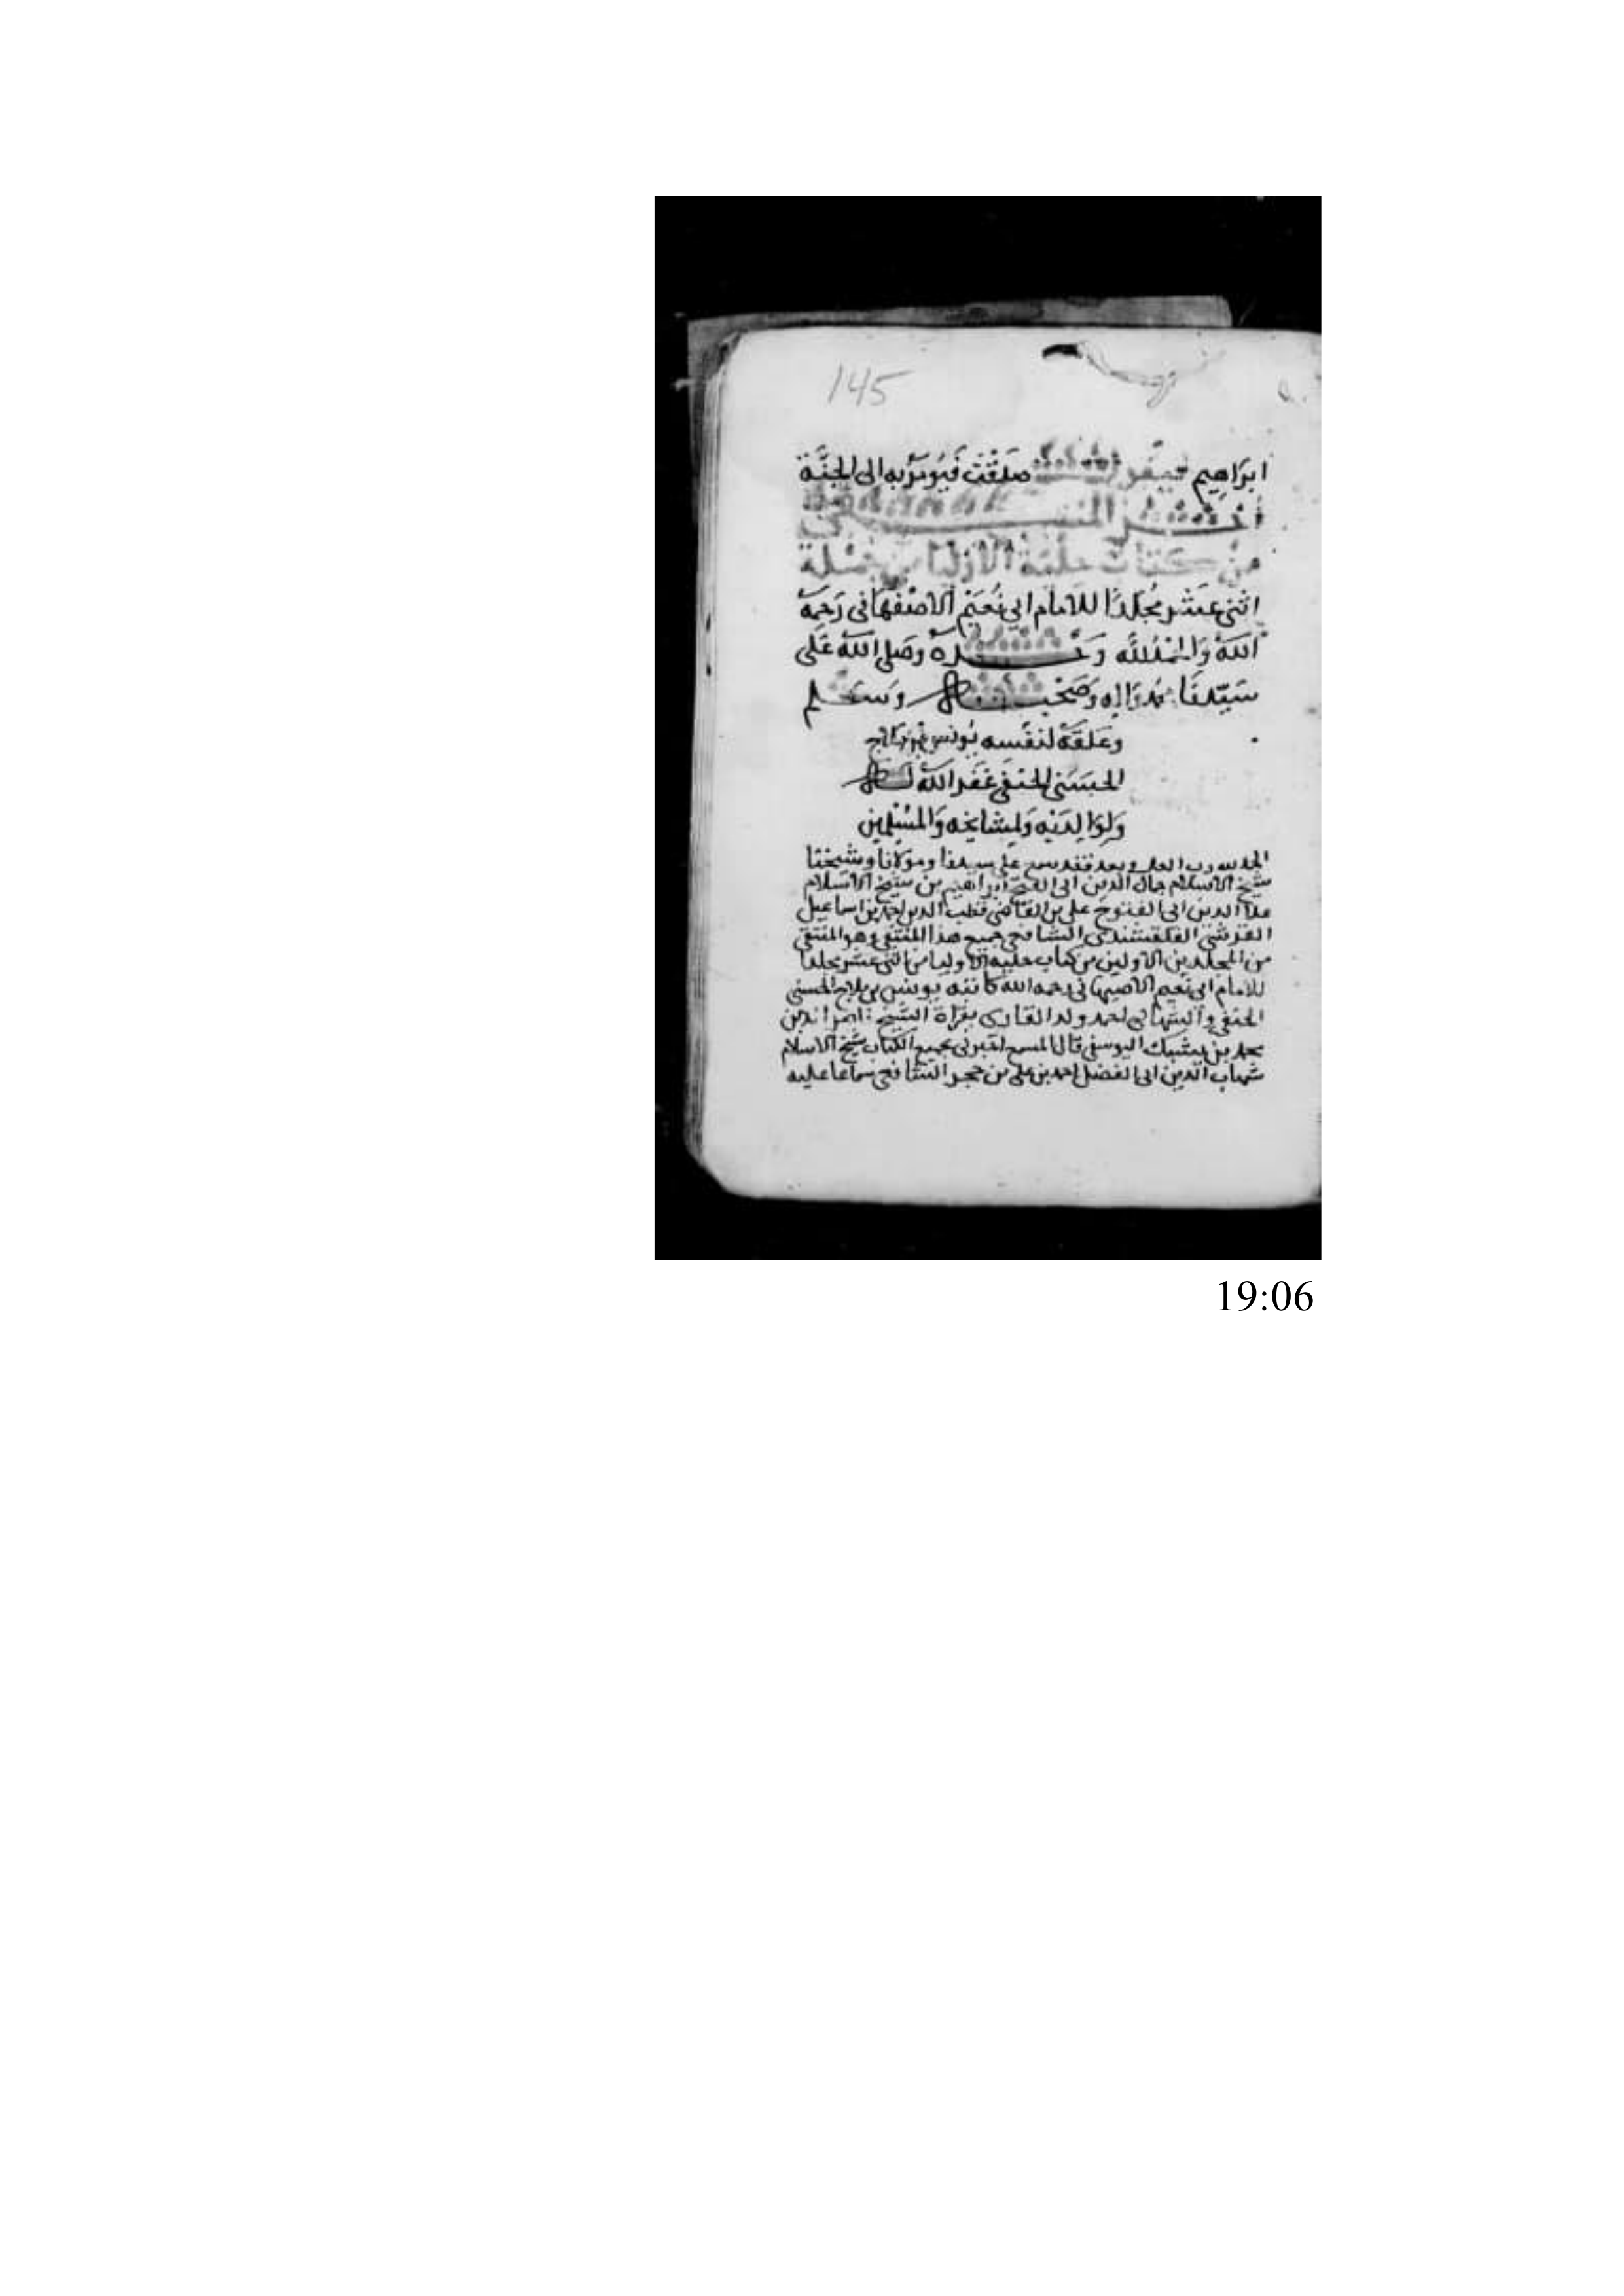 145
ابرَاهِيم فيقول صَدَقْتَ فَيُومَرُ به الى الجَنَّة
آخـــر المنتقى
من كتاب حلية الاوليا من جملة
اثنى عشر مُجلدًا للامام ابى نُعَيْم الاصفهانى رَحِمَهُ
اللهُ وَالحَمْدُ لله وَحْــدهُ وصَلى الله عَلَى
سَيّدنَا محمد وَاله وَصَحْبـه وسَلم
وعَلقهُ لنفسه يُونس بن ملاج
الحسَنى الحنفى غَفَر اللهُ لـه
وَلِوَالِدَيْه وَلِمشايخه وَالمسْلمين
الحمد لله رب العلمين وبعد فقد سمع على سيدنا ومولانا وشيخنا
شيخ الاسلام جمال الدين ابى الفتح ابراهيم بن شيخ الاسلام
علا الدين ابى الفتوح على بن القاضى قطب الدين احمد بن اسماعيل
القرشى القلقشندى الشافعى جميع هذا المنتقى وهو المنتقى
من المجلدين الاولين من كتاب حلية الاوليا من اثنى عشر مجلدا
للامام ابى نعيم الاصبهانى رحمه الله كاتبه يونس بن ملاج الحسنى
الحنفى والشهابى احمد ولد القارى بقراة الشيخ ناصر الدين
محمد بن يشبك اليوسفى قال المسمع اخبرنى بجميع الكتاب شيخ الاسلام
شهاب الدين ابى الفضل احمد بن على بن حجر الشافعى سماعا عليه
19:06